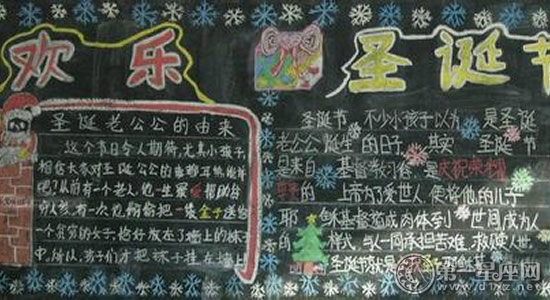 欢乐
圣诞节
圣诞老公公的由来
这个节日令人期待,尤其小孩子
相信大家对圣诞公公的
吧?从前有一个老人,他一生
穷人家,有一次他偷偷把一袋金子送给
一个贫穷的女子,恰好放在了墙上的袜子
中,所以,孩子们才把袜子挂在墙上
圣诞节 不少小孩子以为 是圣诞
老公公诞生的日子,其实 圣诞节
是来自基督教习俗,是庆祝
的 上帝为了爱世人,便将他的儿子
耶 基督造成肉体到 世间成为人
样式,与人一同承担苦难,救赎人世,
圣诞节就是
第一星座网
www.d1xz.net